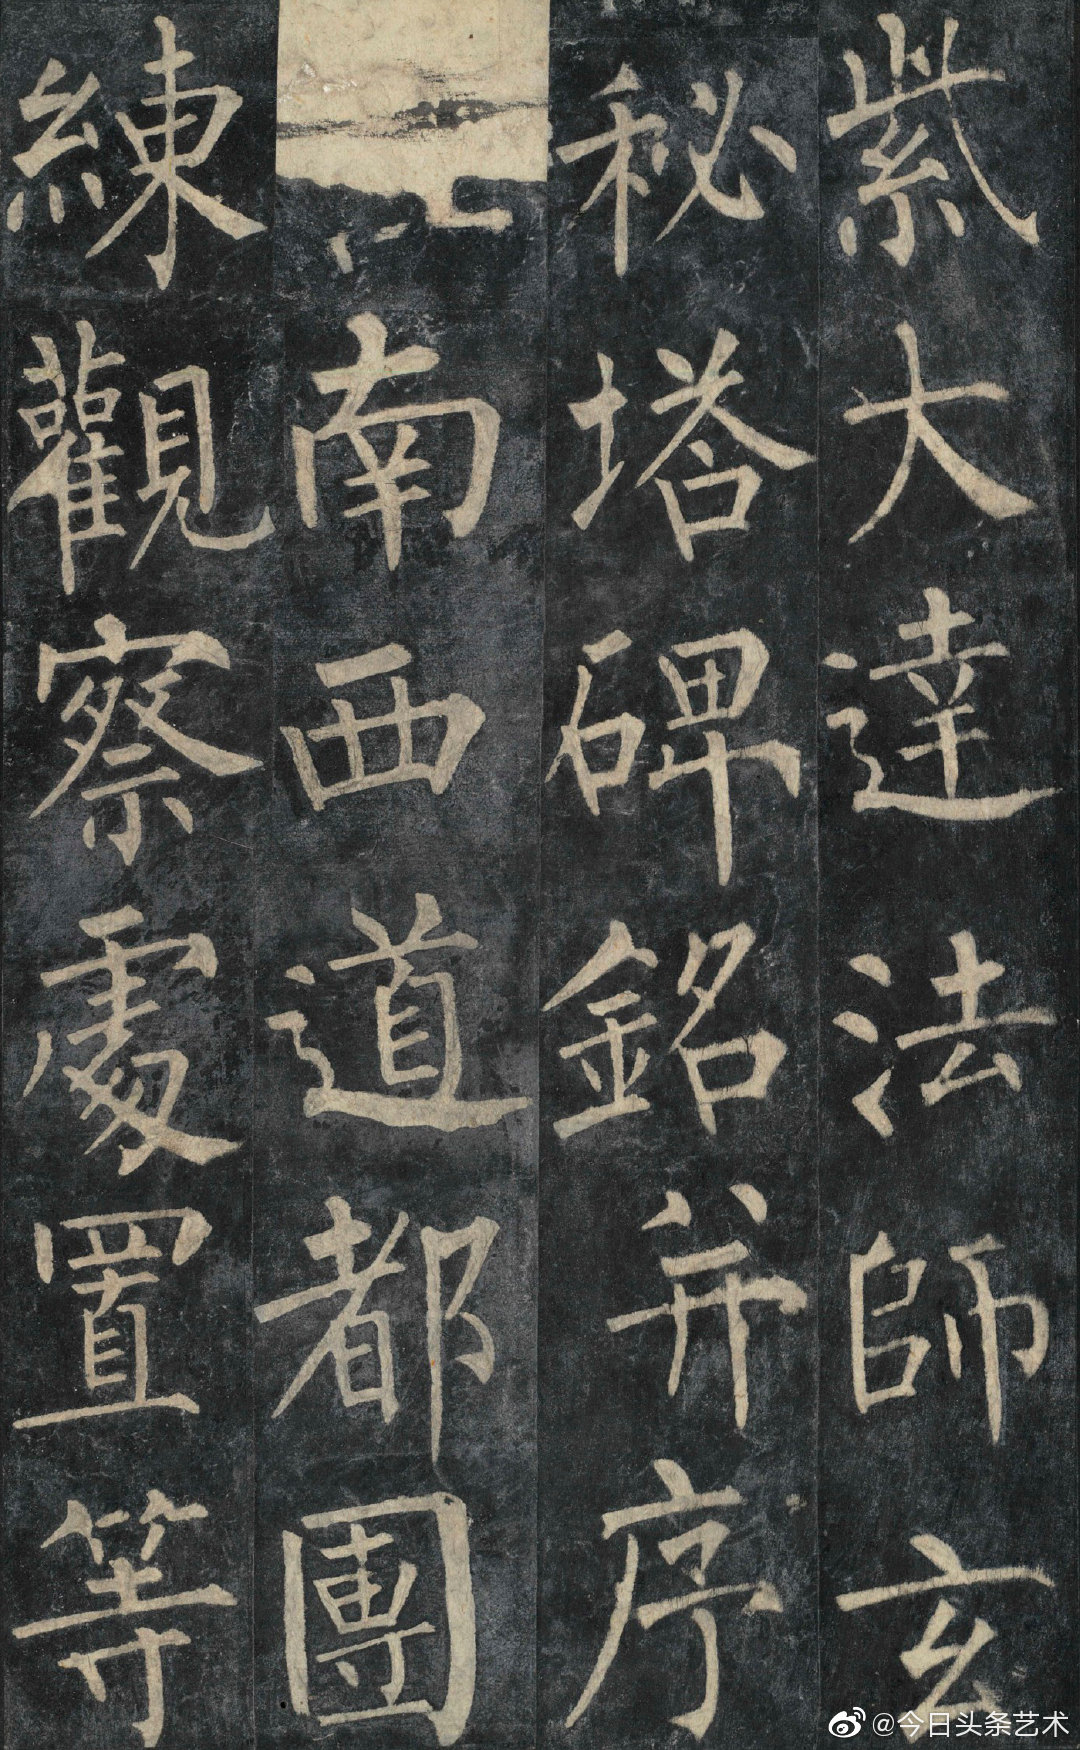 紫大達法師玄
秘塔碑銘并序
南西道都團
練觀察處置等
@今日头条艺术